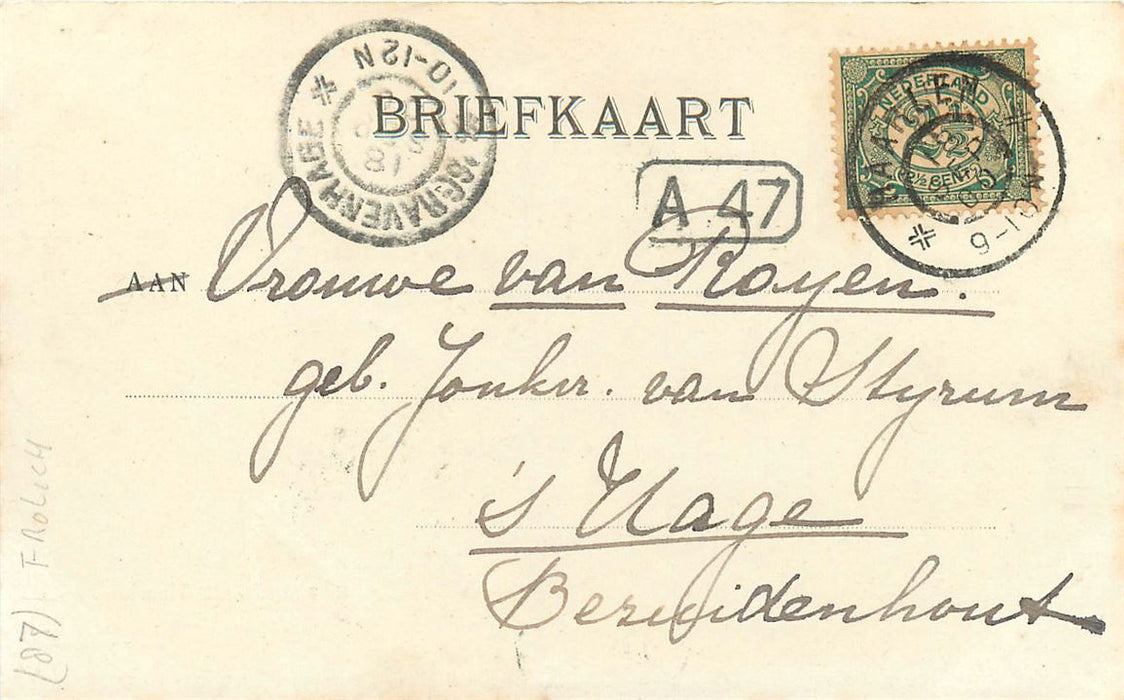 10-12N
'S GRAVENHAGE
BRIEFKAART
A 47
NEDERLAND
2½
2½ CENT
9-10N
AAN Vrouwe van Royen.
geb. Jonkvr. van Styrum
's Hage
Bezuidenhout
(87) FROLICH